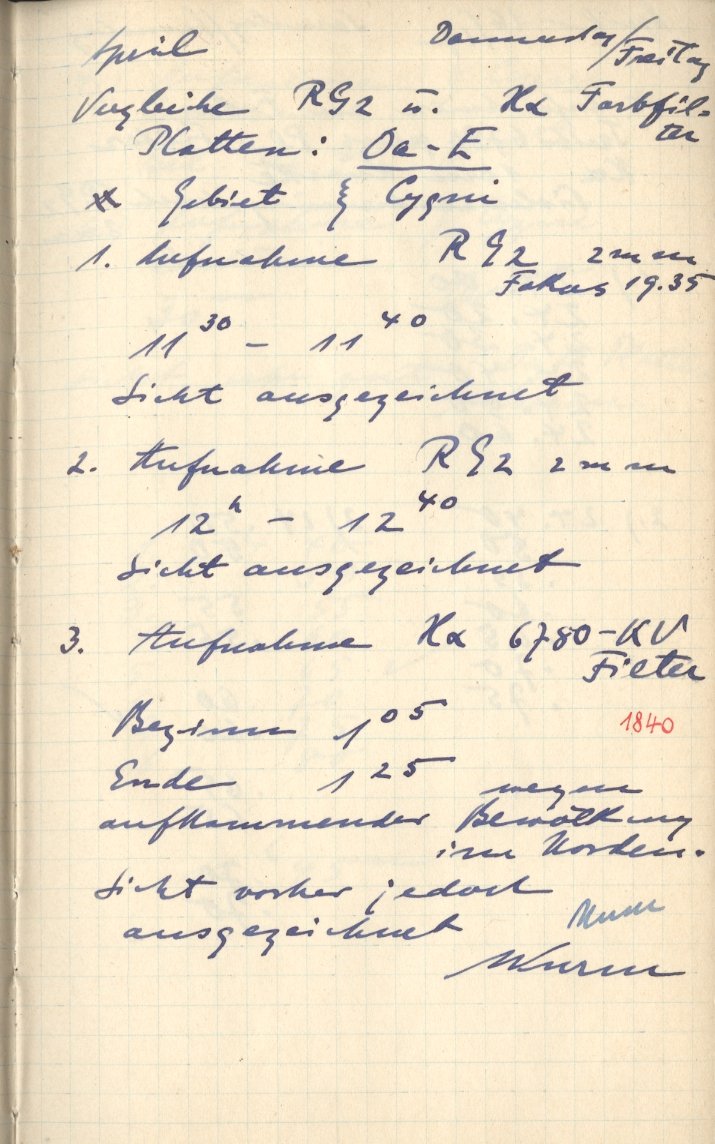 April Donnerstag/Freitag
Vergleiche RG2 u. Hα Farbfil-
ter
Platten: Oa-E
Gebiet ξ Cygni
1. Aufnahme RG2 2mm
Fokus 19.35
11 30 – 11 40
Sicht ausgezeichnet
2. Aufnahme RG2 2mm
12 h – 12 40
Sicht ausgezeichnet
3. Aufnahme Hα 6780-KV
Filter
Beginn 1 05
1840
Ende 1 25 wegen
aufkommender Bewölkung
im Norden.
Sicht vorher jedoch
ausgezeichnet
Wurm